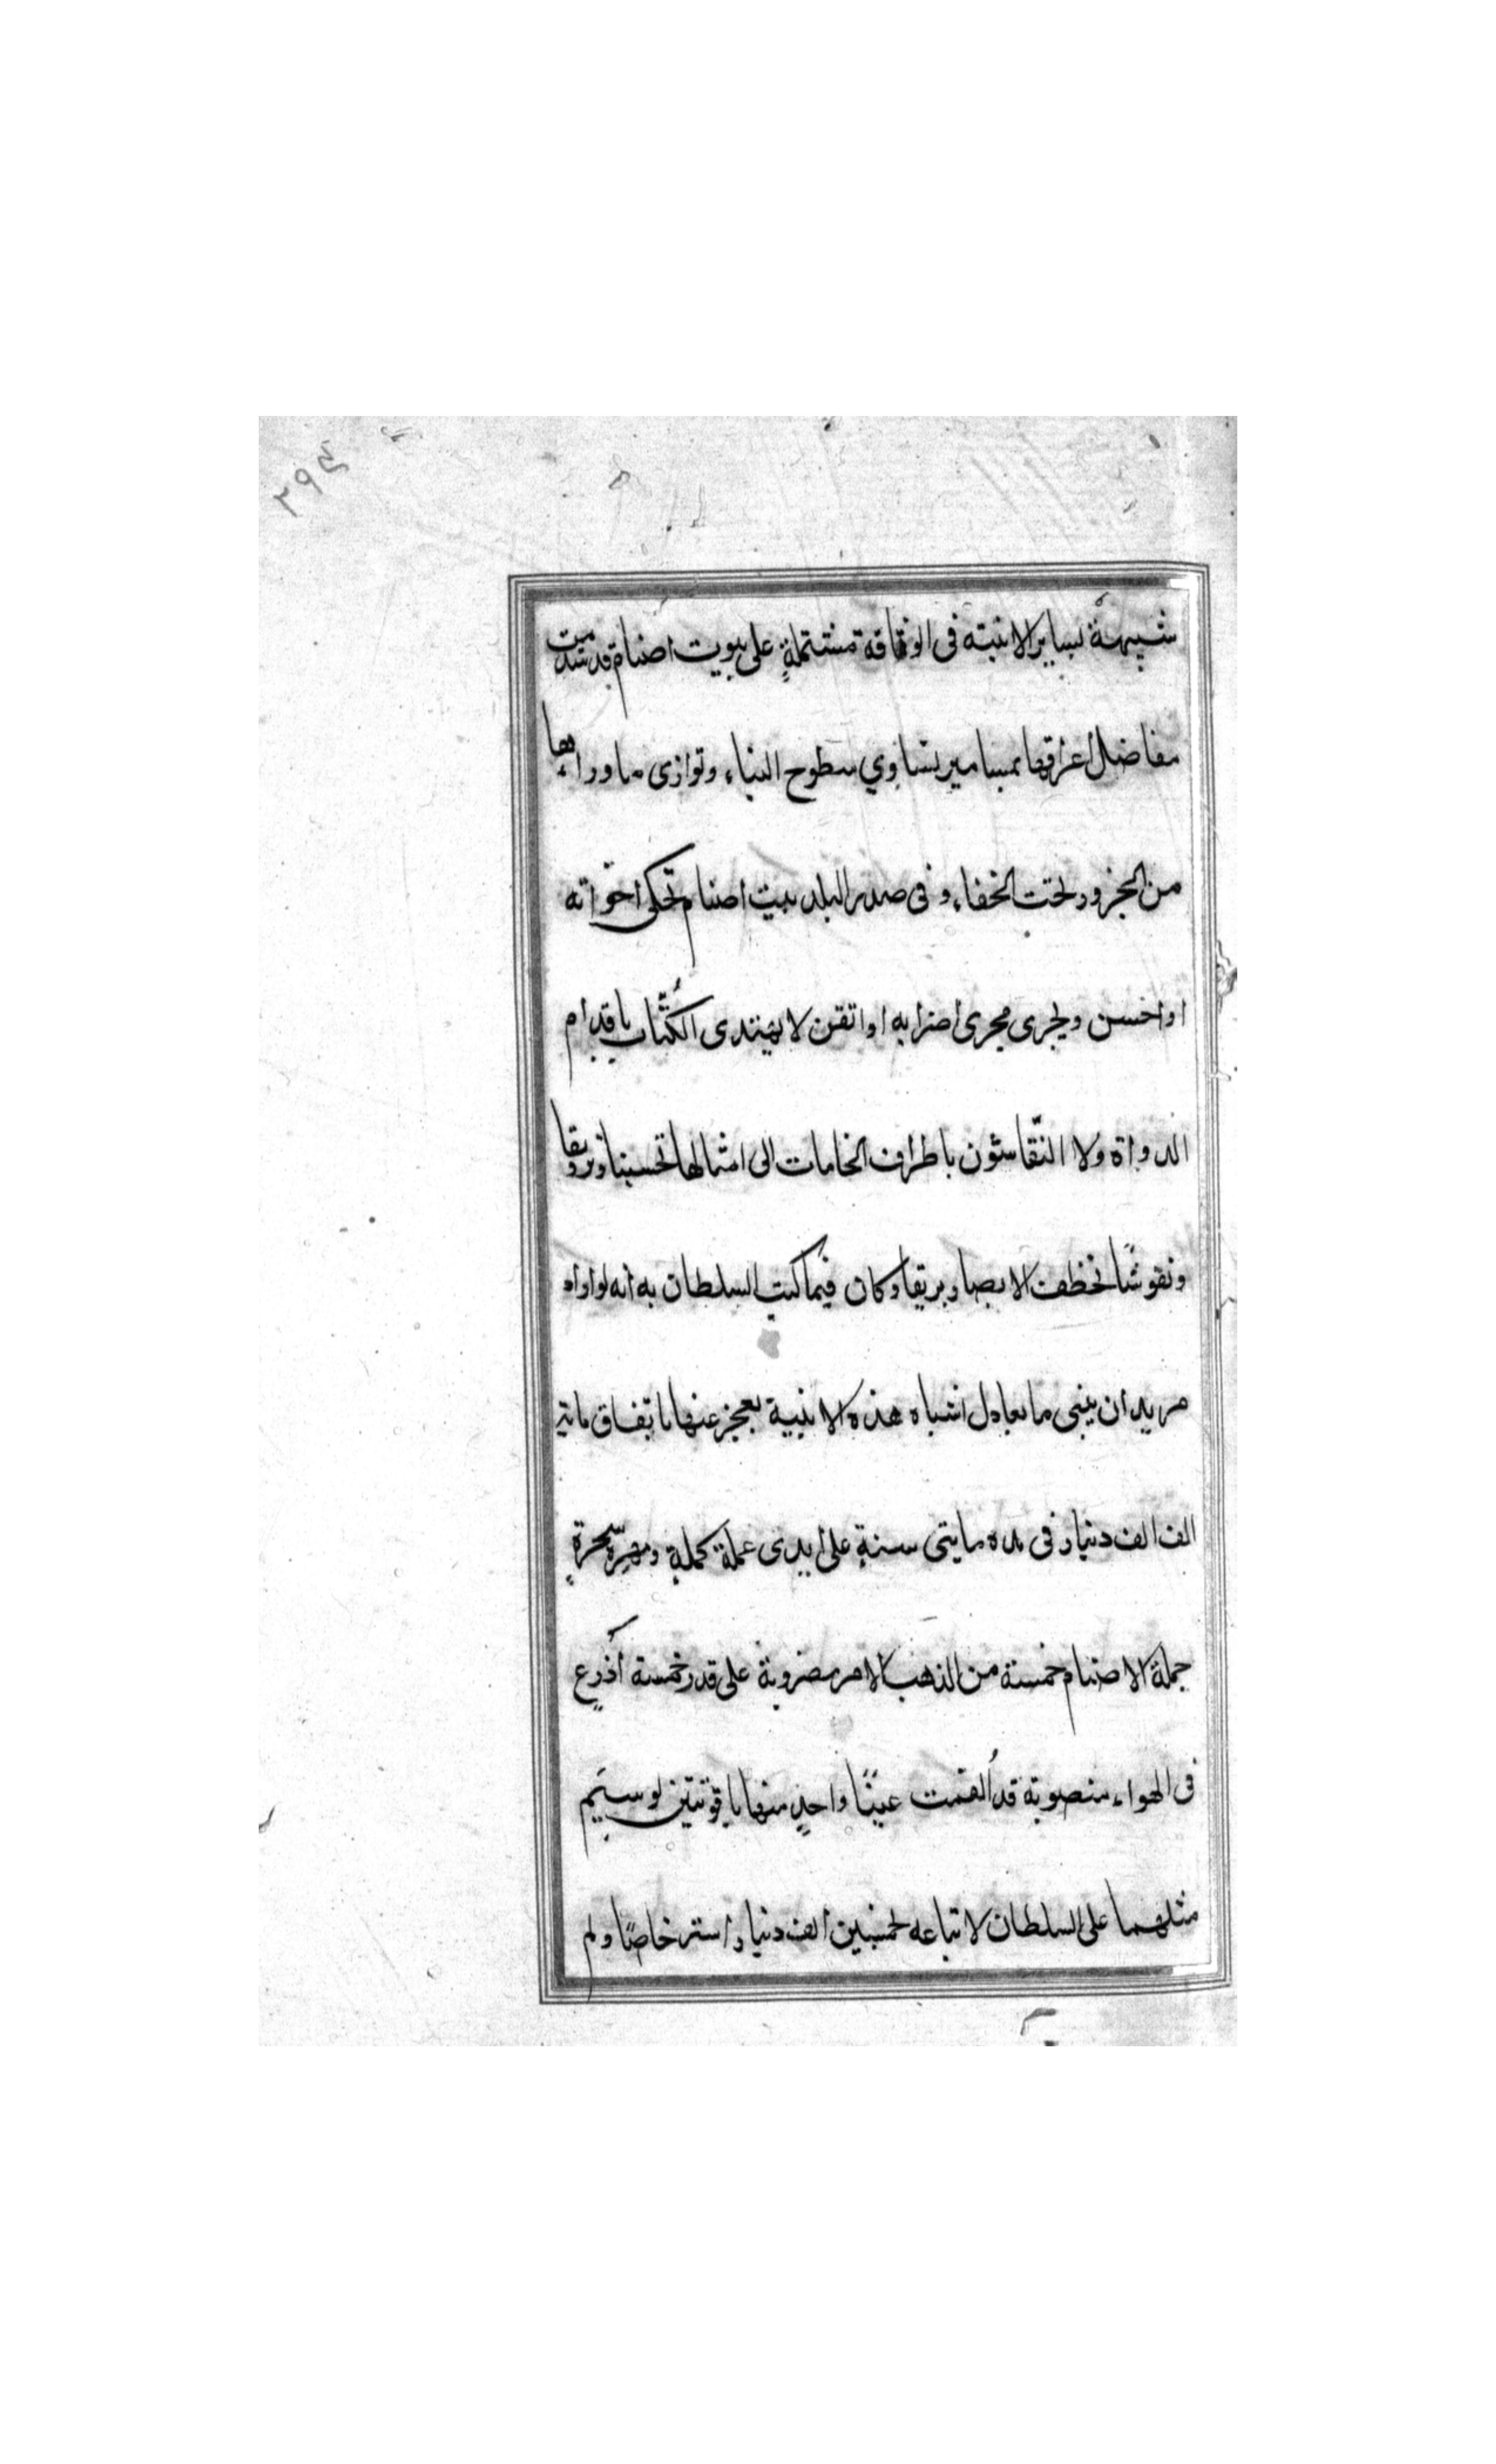 ٢٩٤
شبيهةً بساير الابنية فى الوثاقة مشتملةٍ على بيوت اصنام قد شدت
مفاصل اعراقها بمسامير يساوي سطوح البناء وتوازى ماوراءها
من الحجز ود لحت الخفاء وفى صدر البلد بيت اصنام تحكى اخواته
او احسن ويجرى مجرى اضرابه او اتقن لا يهتدى الكُتّاب باقدام
الدواة ولا النّقاشون باطراف الخامات الى امثالها تحسينا وتزويقا
ونقوشًا تخطف الابصار بريقا وكان فيما كتب السلطان به انه لو اراد
مريد ان يبنى ما يعادل اشباه هذه الابنية يعجز عنها باتفاق ماية
الف الف دينار فى مده مايتى سنةٍ على ايدى عملة كملةٍ ومهرةٍ سحرةٍ
جملة الاصنام خمسة من الذهب الاحمر مضروبة على قدر خمسة أذرعٍ
فى الهواء منصوبة قد اُلقمت عينًا واحدٍ منها ياقوتتين لو سِيَم
مثلهما على السلطان لاتباعه لخمسين الف دينار استرخاصًا ولم